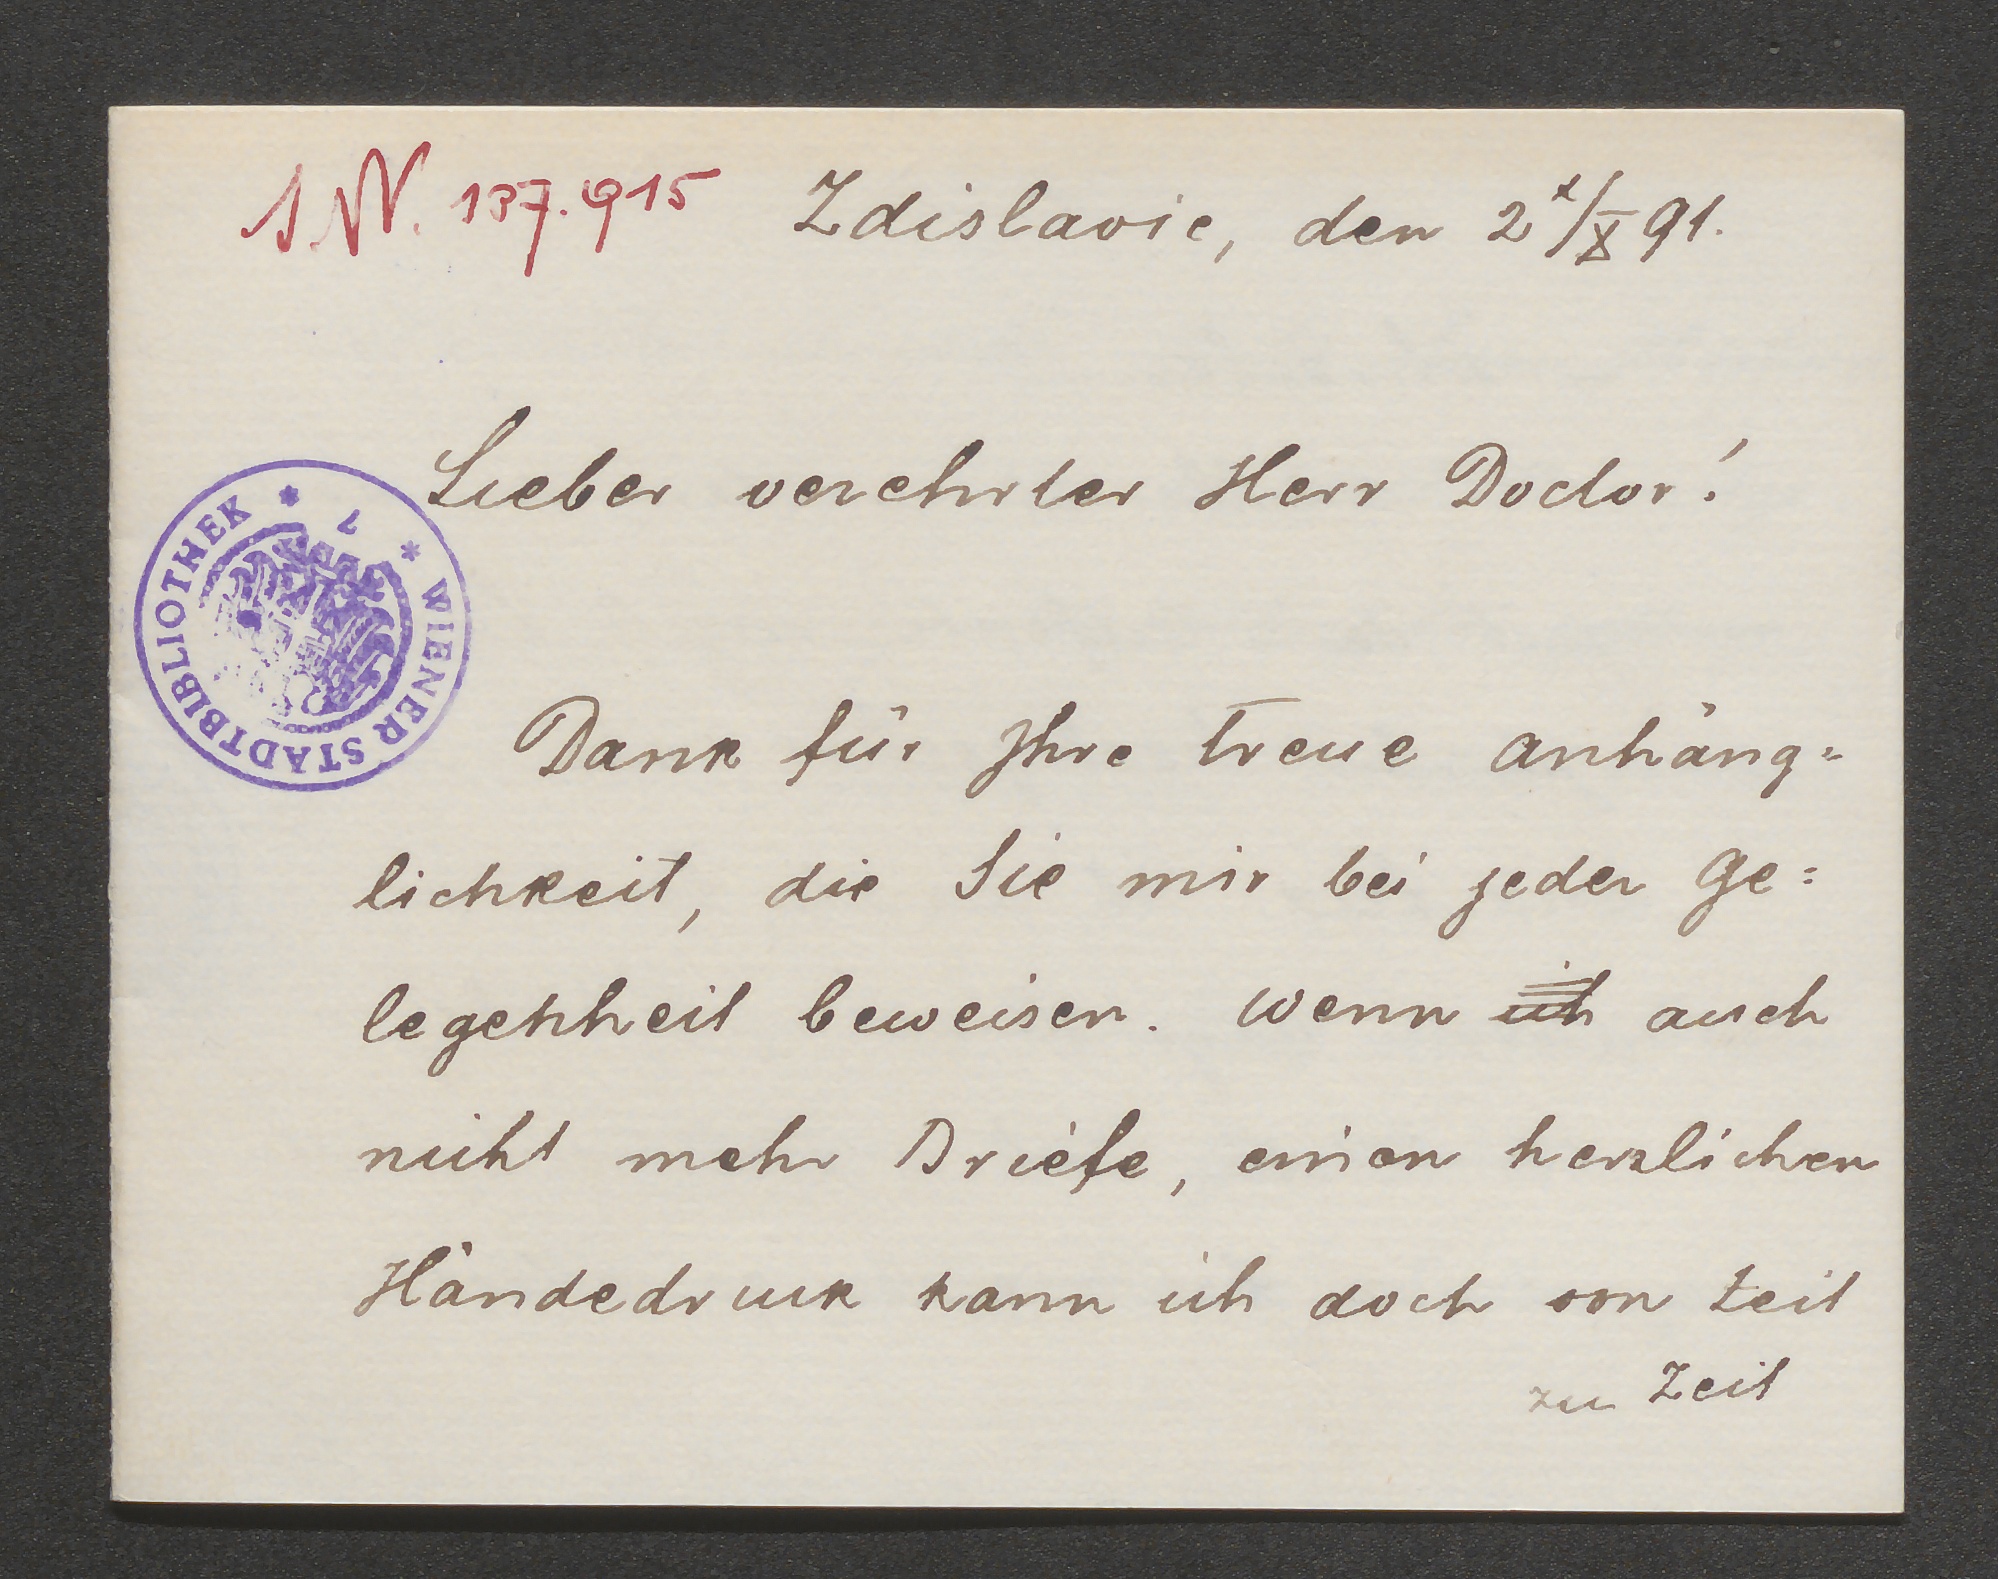 I.N. 137.915
Zdislavic, den 2t/X 91.
Lieber verehrter Herr Doctor!
* WIENER STADTBIBLIOTHEK * 1
Dank für Ihre treue Anhäng=
lichkeit, die Sie mir bei jeder Ge=
legenheit beweisen. Wenn ich auch
nicht mehr Briefe, einen herzlichen
Händedruck kann ich doch von Zeit
zu Zeit